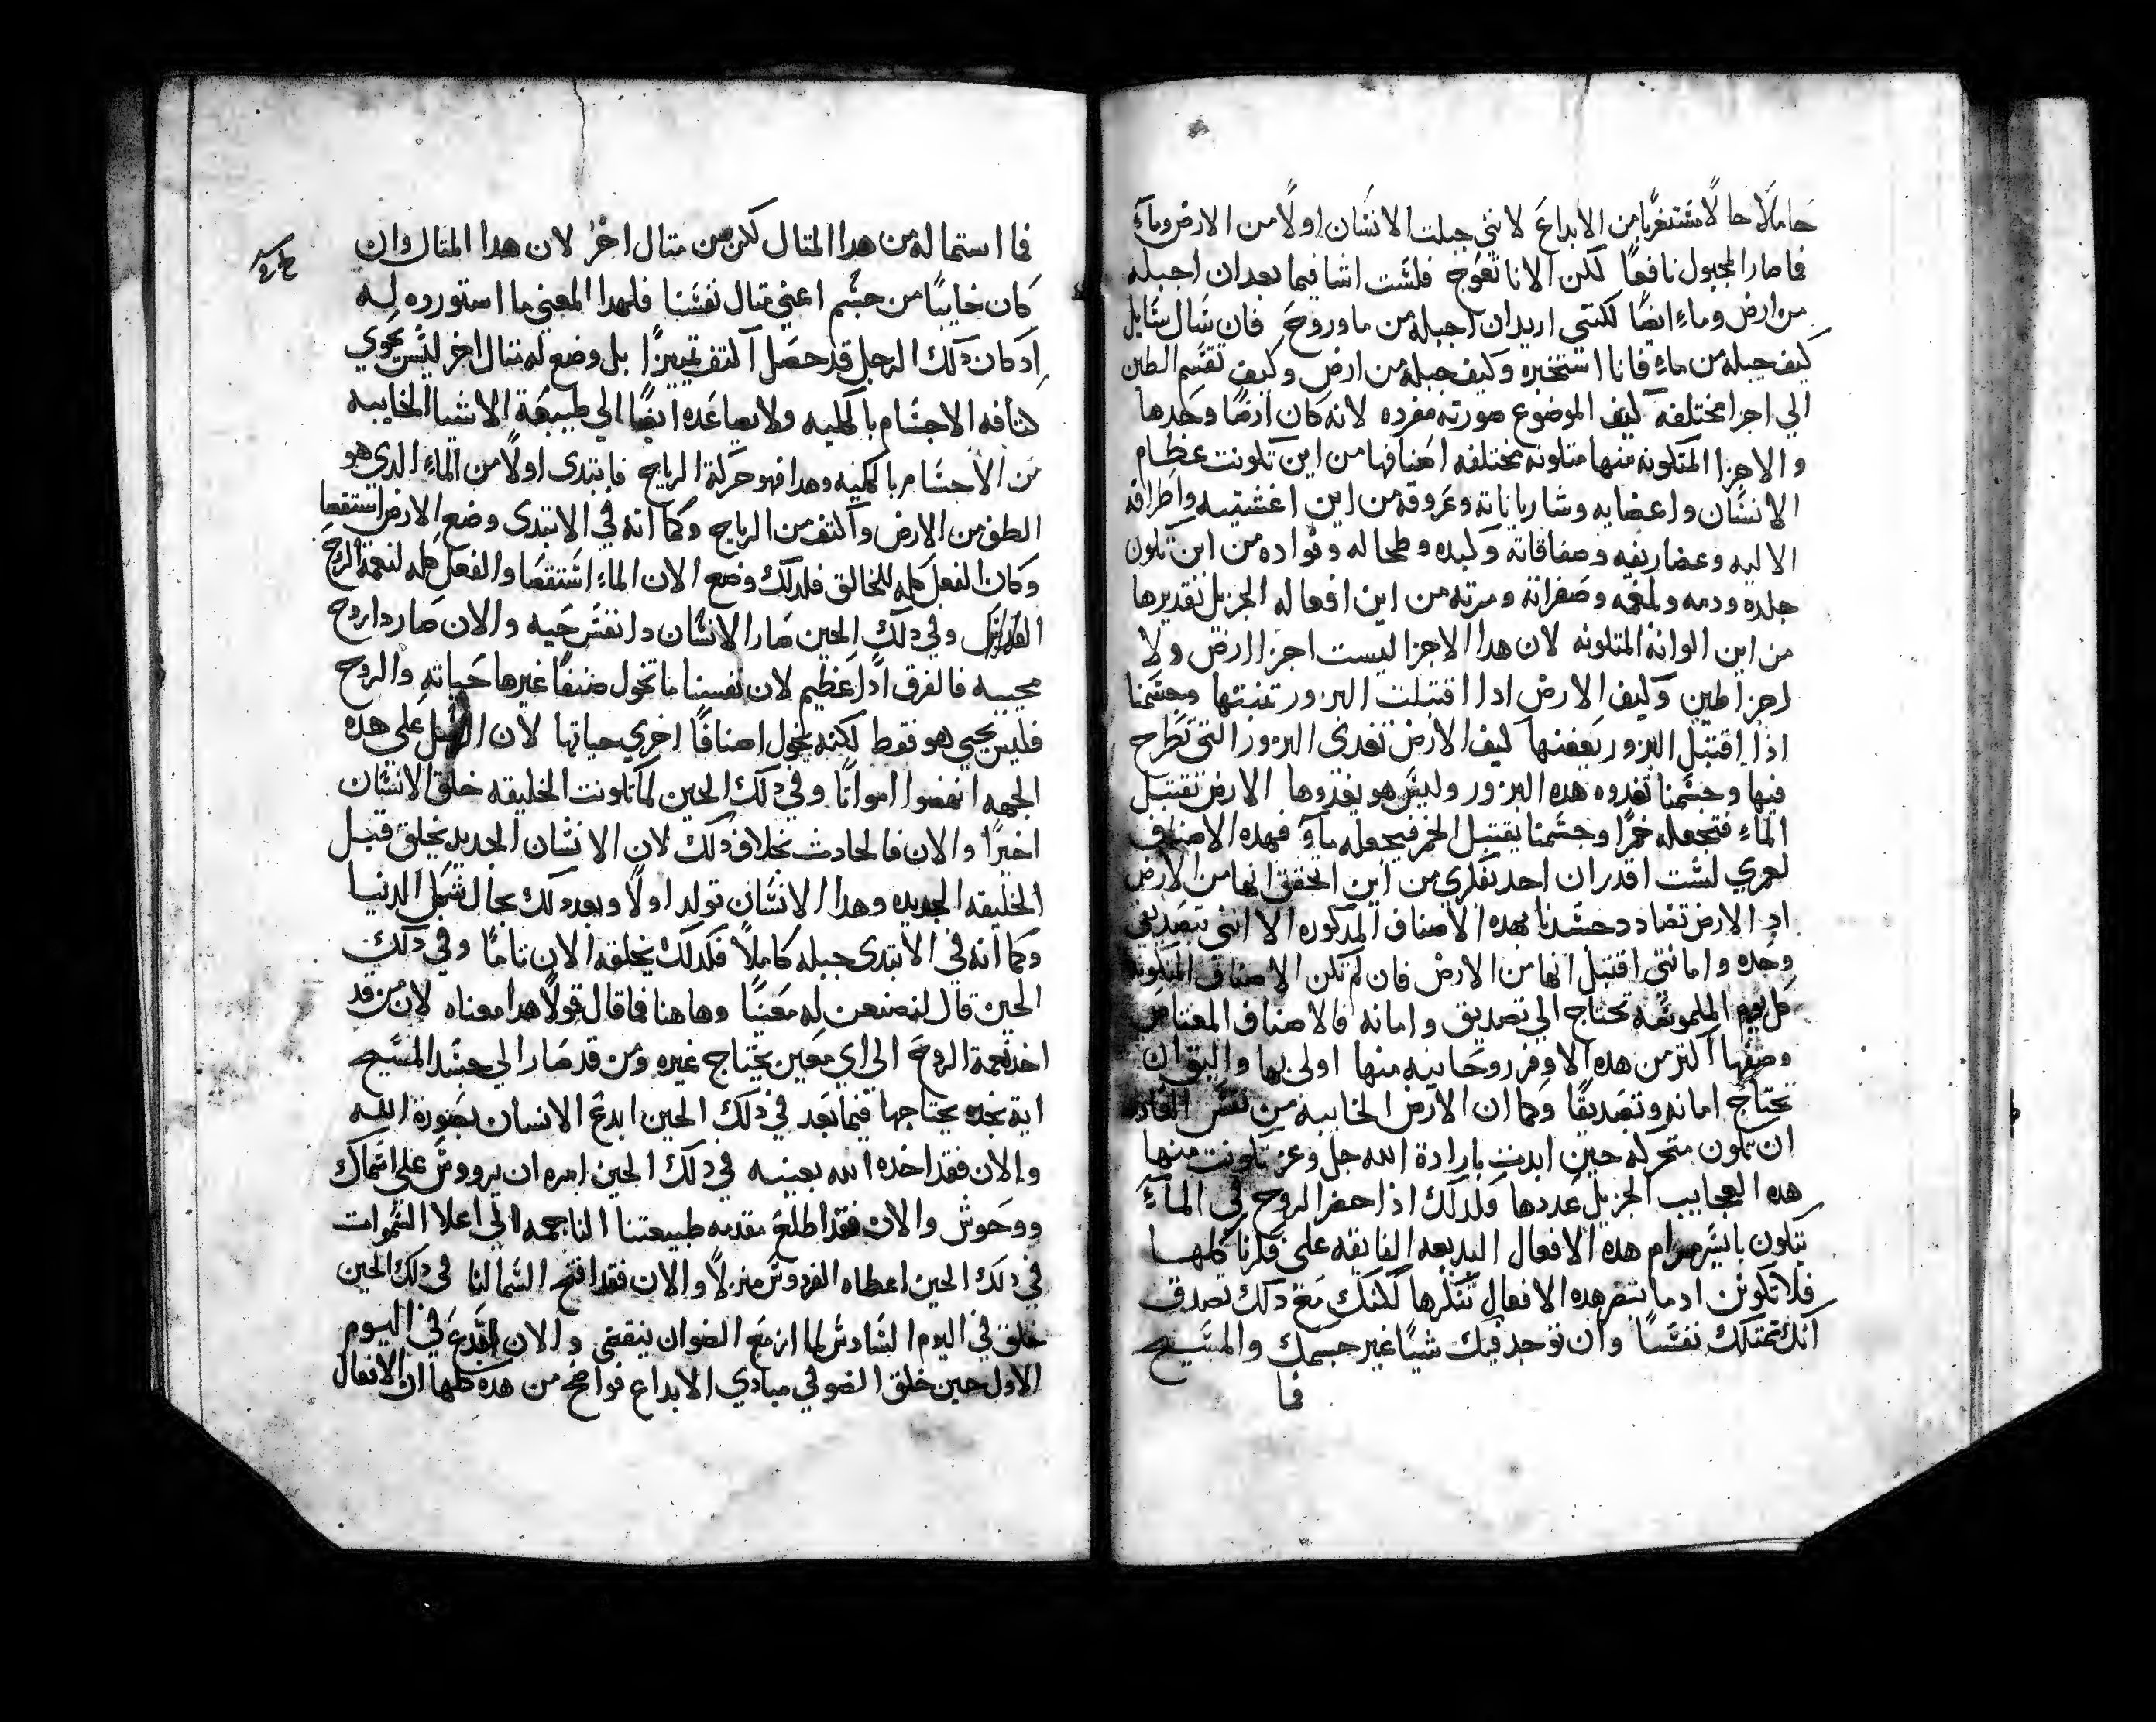 حاملًا حالًا مستغربًا من الابداع لانني جبلت الانسان اولًا من الارض وماءٍ
فما صار المجبول نافعًا لكن الانا تعوج فلست اشا فيما بعد ان اجبله
من ارض وماءٍ ايضًا لكنني اريد ان اجبله من ما وروح فان سال سايل
كيف جبله من ماءٍ فانا استخبره وكيف جبله من ارض وكيف تقسم الطين
الي اجزا مختلفه كيف الموضوع صورته مفرده لانه كان ارضًا وحدها
والاجزا المتكونه منها متلونه مختلفه اصنافها من اين تكونت عظام
الانسان واعضايه وشارياناته وعروقه من اين اغشيتيه واطرافه
الاليه وعضاريفه وصفاقاته وكبده وطحاله وفواده من اين تكون
جلده ودمه وبلغمه وصفراته ومرته من اين افعاله الجزيل تقديرها
من اين الوانه المتلونه لان هدا الاجزا ليست اجزا ارض ولا
اجزا طين وكيف الارض ادا اقتبلت البزور تنبتها وجسمنا
اذا اقتبل البزور يعفنها كيف الارض تغدى البزور التي تطرح
فيها وجسمنا تغدوه هده البزور وليس هو يغدوها الارض تقتبل
الماءِ فتجعله خمرًا وجسمنا يقتبل الخمر فيجعله ماءً فهده الاصناف
لعمري لست اقدر ان احد بفكري من اين اتحقق انها من الارض
اد الارض تضادد جسدنا بهده الاصناف المدكوره الا انني بتصديق
وحده وامانتي اقتبل انها من الارض فان لم تكن الاصناف المتكونه
كل يوم الملموسه تحتاج الي تصديق وامانه فالاصناف المعتاص
وصفها اكتر من هده الاوفر روحانيه منها اولى بها واليق ان
تحتاج امانه وتصديقًا وكما ان الارض الخاييه من نفس
ان تكون متحركه حين ابدت بارادة الله جل وعز تكونت منها
هده العجايب الجزيل عددها فلدلك اذا حضر الروح في الماءَ
يتكون بايسر مرام هده الافعال البديعه الفايقه على فكرنا كلها
فلا تكونن اد ما تبصر هده الافعال تنكرها لكنك مع دلك تصدق
انك تمتلك نفسًا وان توجد فيك شيًا غير جسمك والمسيح
فما
فما استماله من هدا المتال لكن من متال اخر لان هدا المتال وان
كان خايبًا من جسم اعني متال نفسنا فلهدا المعني ما استورده له
اد كان دلك الرجل قد حصل اكتف تمييزًا بل وضع له متال اخر ليس يحوي
كتافه الاجسام بالكليه ولا يصاعده ايضًا الي طبيعة الاشيا الخاييه
من الاجسام بالكليه وهدا فهو حركة الرياح فابتدى اولًا من الماءِ الدي هو
الطف من الارض واكتف من الرياح وكما انه في الابتدى وضع الارض استقصا
وكان الفعل كله للخالق فلدلك وضع الان الماءِ استقصا والفعل كله لنعمة الروح
وفي دلك الحين صار الانسان دا نفس حيه والان صار دا روح
محييه فالفرق ادًا عظيم لان نفسنا ما تخول صنفًا غيرها حياته والروح
فليس يحيي هو فقط لكنه يخول اصنافًا اخري حياتها لان الرسل علي هده
الجهه انهضوا امواتًا وفي دلك الحين لما تكونت الخليقه خلق الانسان
اخيرًا والان فالحادت بخلاف دلك لان الانسان الجديد يخلق قبل
الخليقه الجديده وهدا الانسان تولد اولًا وبعد دلك يحال شكل الدنيا
وكما انه في الابتدى جبله كاملًا فكدلك يخلقه الان تامًا وفي دلك
الحين قال لنصنعن له معينًا وهاهنا فما قال قولًا هدا معناه لان من قد
اخد نعمة الروح الى اي معين يحتاج غيره ومن قد صار الي جسد المسيح
اية نجده يحتاجها فيما بعد في دلك الحين ابدع الانسان بصورة الله
والان فقد اخده الله بعينه في دلك الحين امره ان يرووس علي اسماك
ووحوش والان فقد اطلع مقدمه طبيعتنا الناجمه الي اعلا السموات
في دلك الحين اعطاه الفردوس منزلًا والان فقد افتح السما لنا في دلك الحين
خلق في اليوم السادس لما ازمع الضوان ينقضي والان ابتدع في اليوم
الاول حين خلق الضو في مبادي الابداع فواضح من هده كلها ان الافعال